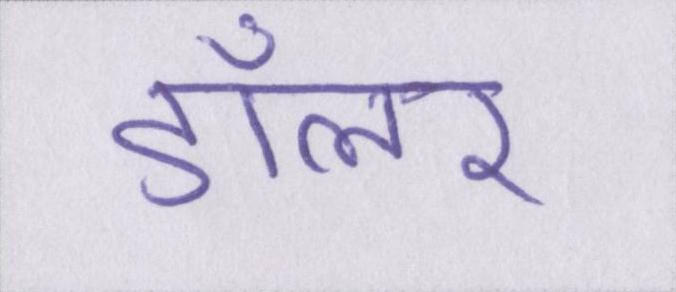 डॉलर